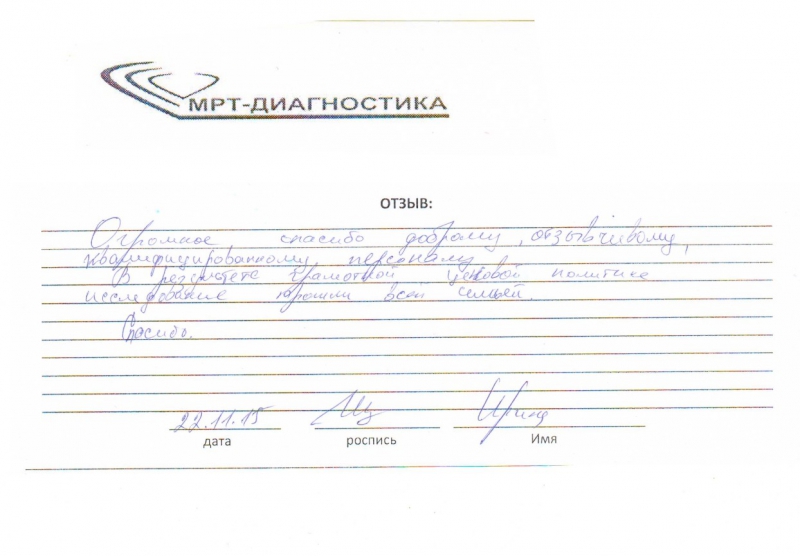 МРТ-ДИАГНОСТИКА
ОТЗЫВ:
Огромное спасибо доброму, отзывчивому,
квалифицированному персоналу
В результате грамотной ценовой политике
исследование прошли всей семьей.
Спасибо.
22.11.15 Ирина
дата роспись Имя